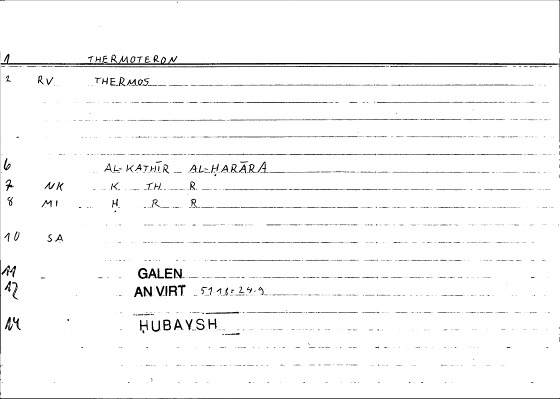 1 THERMOTERON
2 RV THERMOS
6 AL-KATHĪR AL-ḤARĀRA
7 NK K TH R
8 MI Ḥ R R
10 SA
11 GALEN
12 AN VIRT
14 ḤUBAYSH